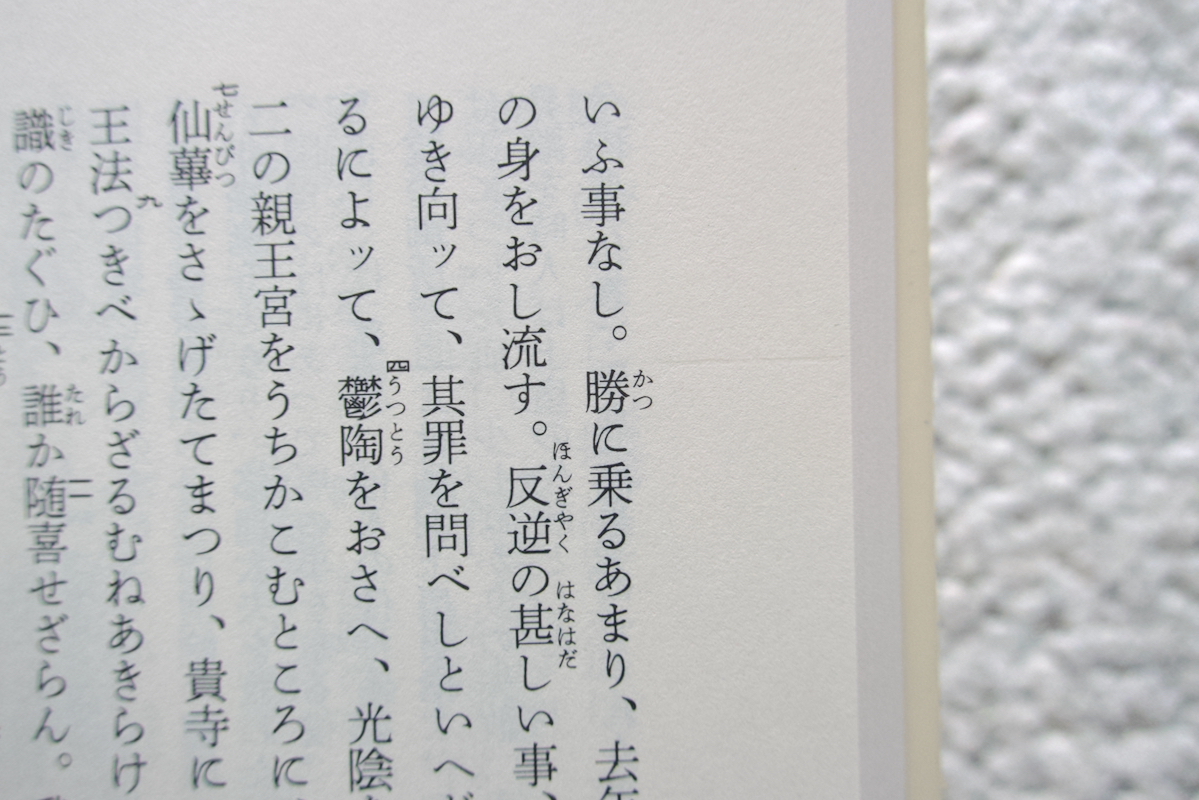 いふ事なし。勝に乗るあまり、去
の身をおし流す。反逆の甚しい事、
ゆき向ッて、其罪を問べしといへど
るによッて、鬱陶をおさへ、光陰
二の親王宮をうちかこむところに
仙蓽をさゝげたてまつり、貴寺に
王法つきべからざるむねあきらけ
識のたぐひ、誰か随喜せざらん。